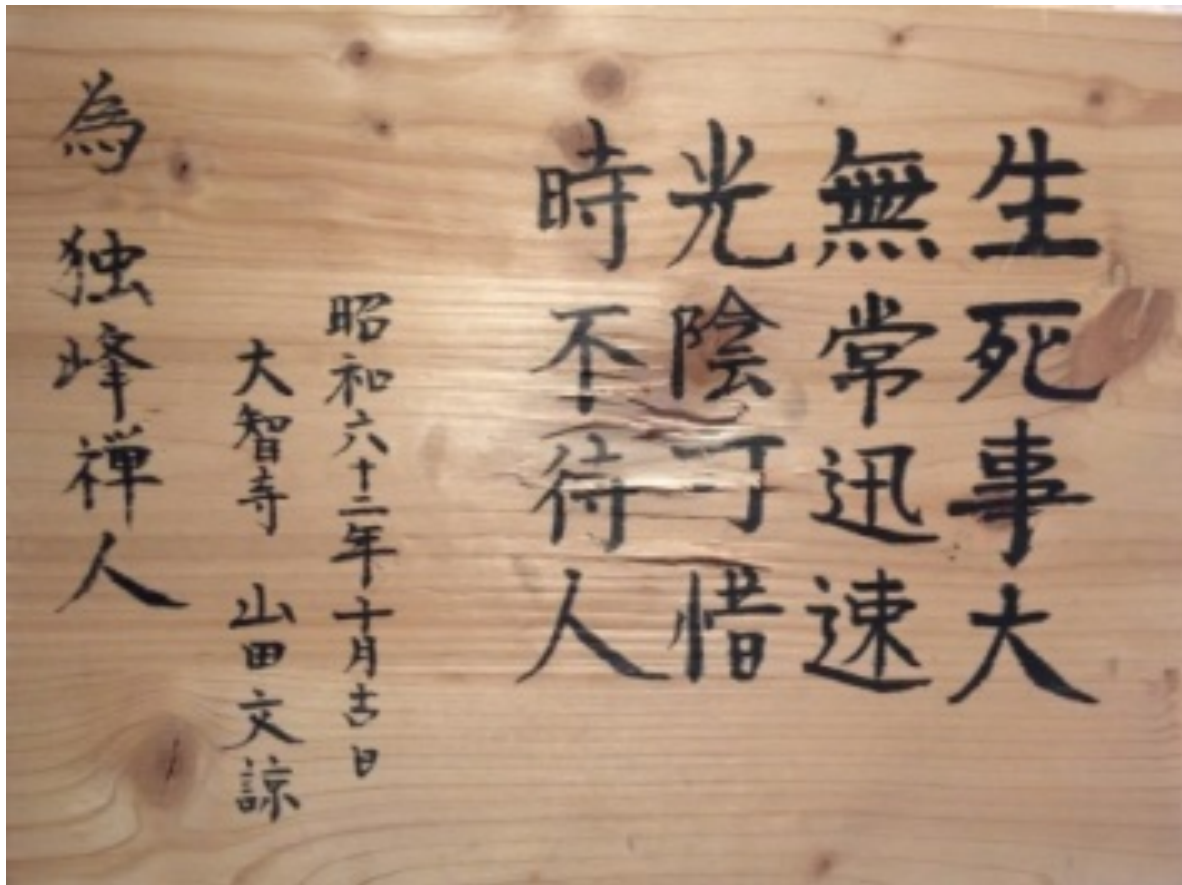 生死事大
無常迅速
光陰可惜
時不待人
昭和六十二年十月吉日
大智寺 山田文諒
為 独峰禅人